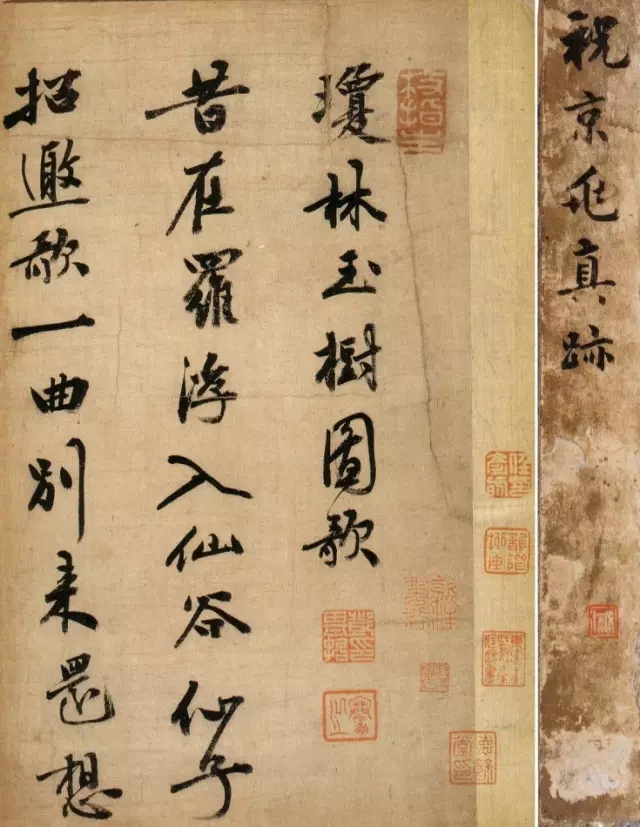 祝京兆真跡
瓊林玉樹圖歌
昔在羅浮入仙谷仙子
招邀歌一曲別来還想
枝指生